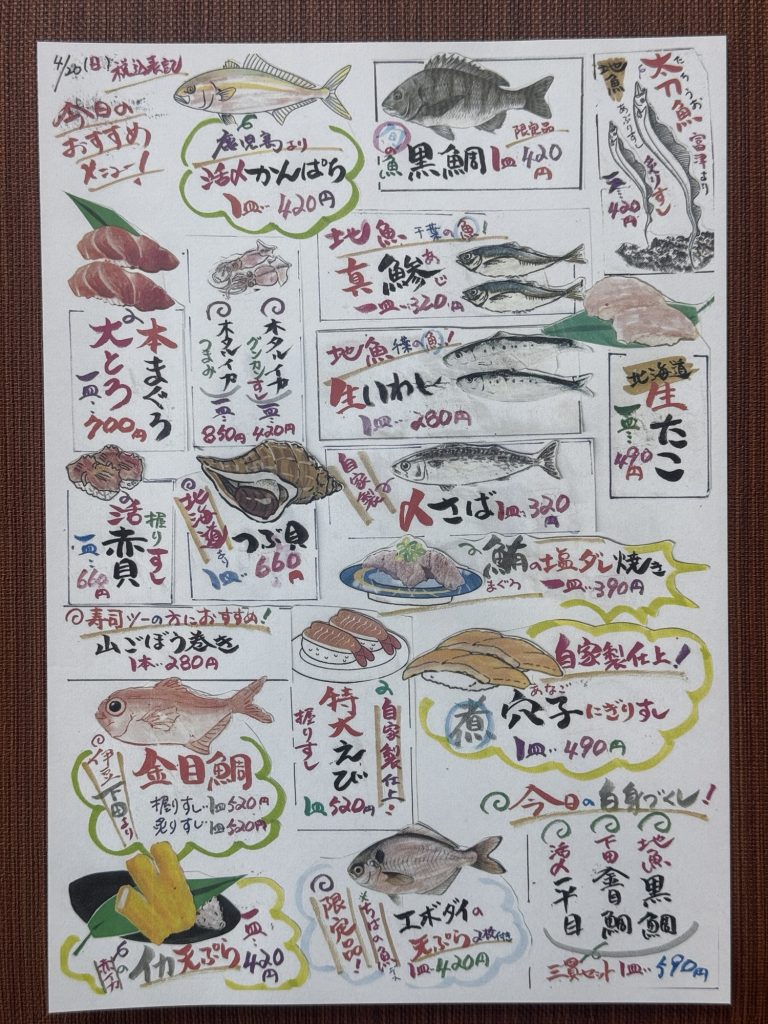 4/20(日) 税込表記
今日の
おすすめ
メニュー!
鹿児島より
活〆かんぱち
1皿…420円
旬の魚
黒鯛
限定品
1皿420円
地魚
太刀魚
たちうお
富津より
あぶりずし
炙りすし
一皿…420円
本まぐろ
大とろ
一皿…700円
ホタルイカ
グンカンすし
一皿…420円
ホタルイカ
つまみ
850円
地魚 千葉の魚!
真鯵
あじ
一皿…320円
地魚 千葉の魚!
生いわし
1皿…280円
北海道
生たこ
一皿…490円
握りすし
活赤貝
一皿…660円
北海道より
つぶ貝
1皿…660円
自家製
〆さば1皿…320円
鮪の塩ダレ焼き
まぐろ
一皿…390円
寿司ツーの方におすすめ!
山ごぼう巻き
1本…280円
自家製仕上!
特大えび
握りすし
1皿520円
自家製仕上!
煮穴子にぎりすし
あなご
1皿…490円
伊豆下田より
金目鯛
握りすし…1皿520円
炙りすし…1皿520円
イカ天ぷら
一皿…420円
限定品!
ちばの魚
エボダイの
天ぷら2枚付き
1皿…420円
今日の白身づくし!
地魚黒鯛
下田金目鯛
活〆平目
三貫セット1皿…590円